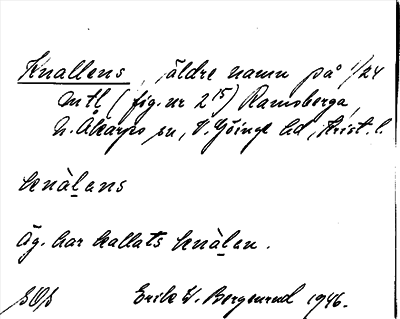 Knallens, äldre namn på 1/24
mtl (fig. nr 2¹⁵) Ramsberga,
N. Åkarps sn, V. Göinge hd, Krist. l.
knàlens
Äg. har kallats knàlen.
Erik W. Bergenrud 1946.